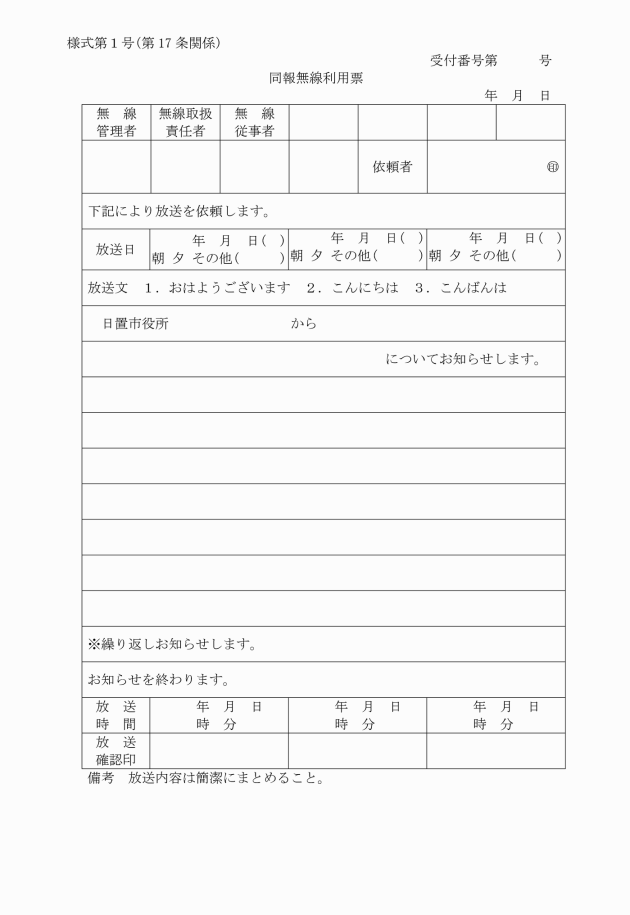 様式第1号(第17条関係)
受付番号第　　　号
同報無線利用票
年　月　日
無　線　無線取扱　無　線
管理者　責任者　従事者
依頼者　㊞
下記により放送を依頼します。
年　月　日(　)　年　月　日(　)　年　月　日(　)
放送日
朝 夕 その他(　　　)　朝 夕 その他(　　　)　朝 夕 その他(　　　)
放送文　1．おはようございます　2．こんにちは　3．こんばんは
日置市役所　　　　　　　　　から
についてお知らせします。
※繰り返しお知らせします。
お知らせを終わります。
放　送　年　月　日　年　月　日　年　月　日
時　間　時　分　時　分　時　分
放　送
確認印
備考　放送内容は簡潔にまとめること。